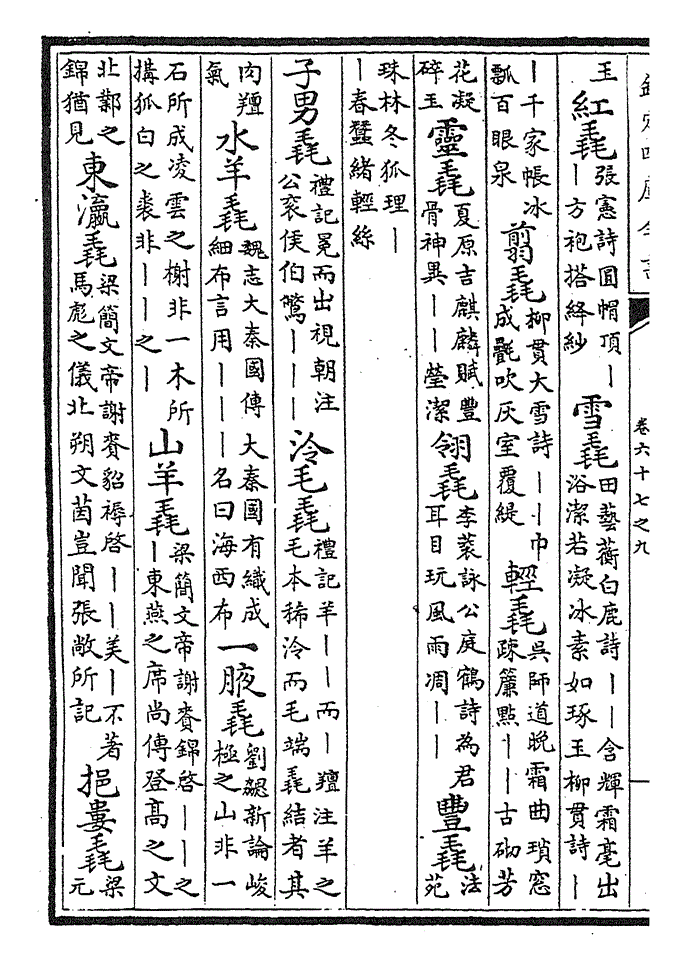 欽定四庫全書
卷六十七之九
玉 紅毳 張憲詩圓帽頂丨丨方袍搭絳紗 雪毳 田藝蘅白鹿詩丨丨含輝霜毫出浴潔若凝冰素如琢玉柳貫詩丨
丨千家帳冰瓢百眼泉 翦毳 柳貫大雪詩丨丨巾成氎吹灰室覆緹 輕毳 吳師道晚霜曲瑣窓疎簾點丨丨古砌芳
花凝碎玉 靈毳 夏原吉麒麟賦豐骨神異丨丨瑩潔 翎毳 李蓘詠公庭鶴詩為君耳目玩風雨凋丨丨 豐毳 法苑
珠林冬狐理丨丨春蠶緒輕絲
子男毳 禮記冕而出視朝注公衮侯伯鷩丨丨丨 泠毛毳 禮記羊丨丨而丨羶注羊之毛本稀泠而毛端毳結者其
肉羶氣 水羊毳 魏志大秦國傳大秦國有織成細布言用丨丨丨名曰海西布 一腋毳 劉勰新論峻極之山非一
石所成凌雲之榭非一木所搆狐白之裘非丨丨之丨 山羊毳 梁簡文帝謝賚錦啓丨丨之丨東燕之席尚傳登高之文
北鄴之錦猶見 東瀛毳 梁簡文帝謝賚貂褥啓丨丨美丨不著馬彪之儀北朔文茵豈聞張敞所記 挹婁毳 梁元